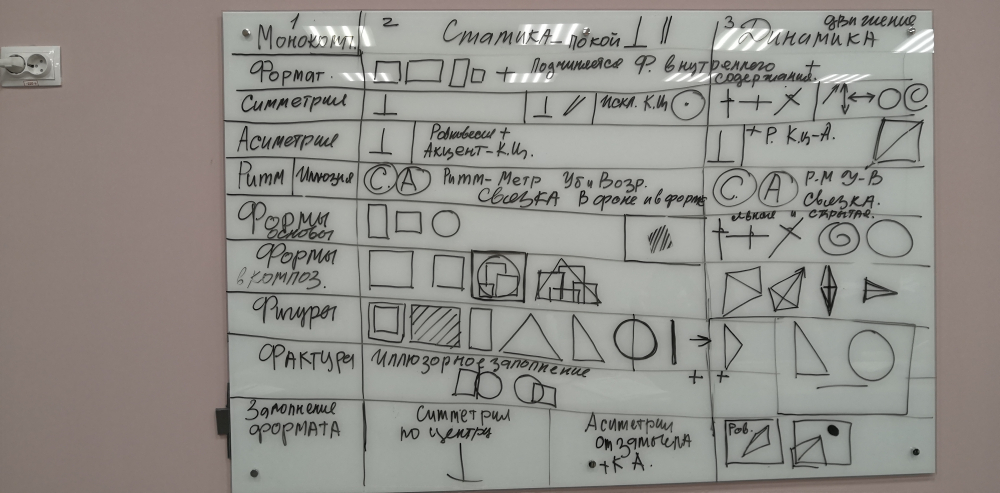 1 2 3 движение
Монокомп. Статика - покой Динамика
Формат. + Подчиняется Ф. внутреннего +
содержания.
Симметрия Искл. К.Ц
Асиметрия Равновесие + + Р. К.ц-А.
Акцент-К.Ц.
Ритм Иллюзия С. А Ритм-Метр Уб и Возр. С. А Р-М У-В
Связка В фоне и в форме Связка.
Формы и скрытая.
основы
Формы
в композ.
Фигуры
Фактура Иллюзорное заполнение + +
Заполнение Симметрия Асиметрия Рав.
формата по центру от замысла
+К А.